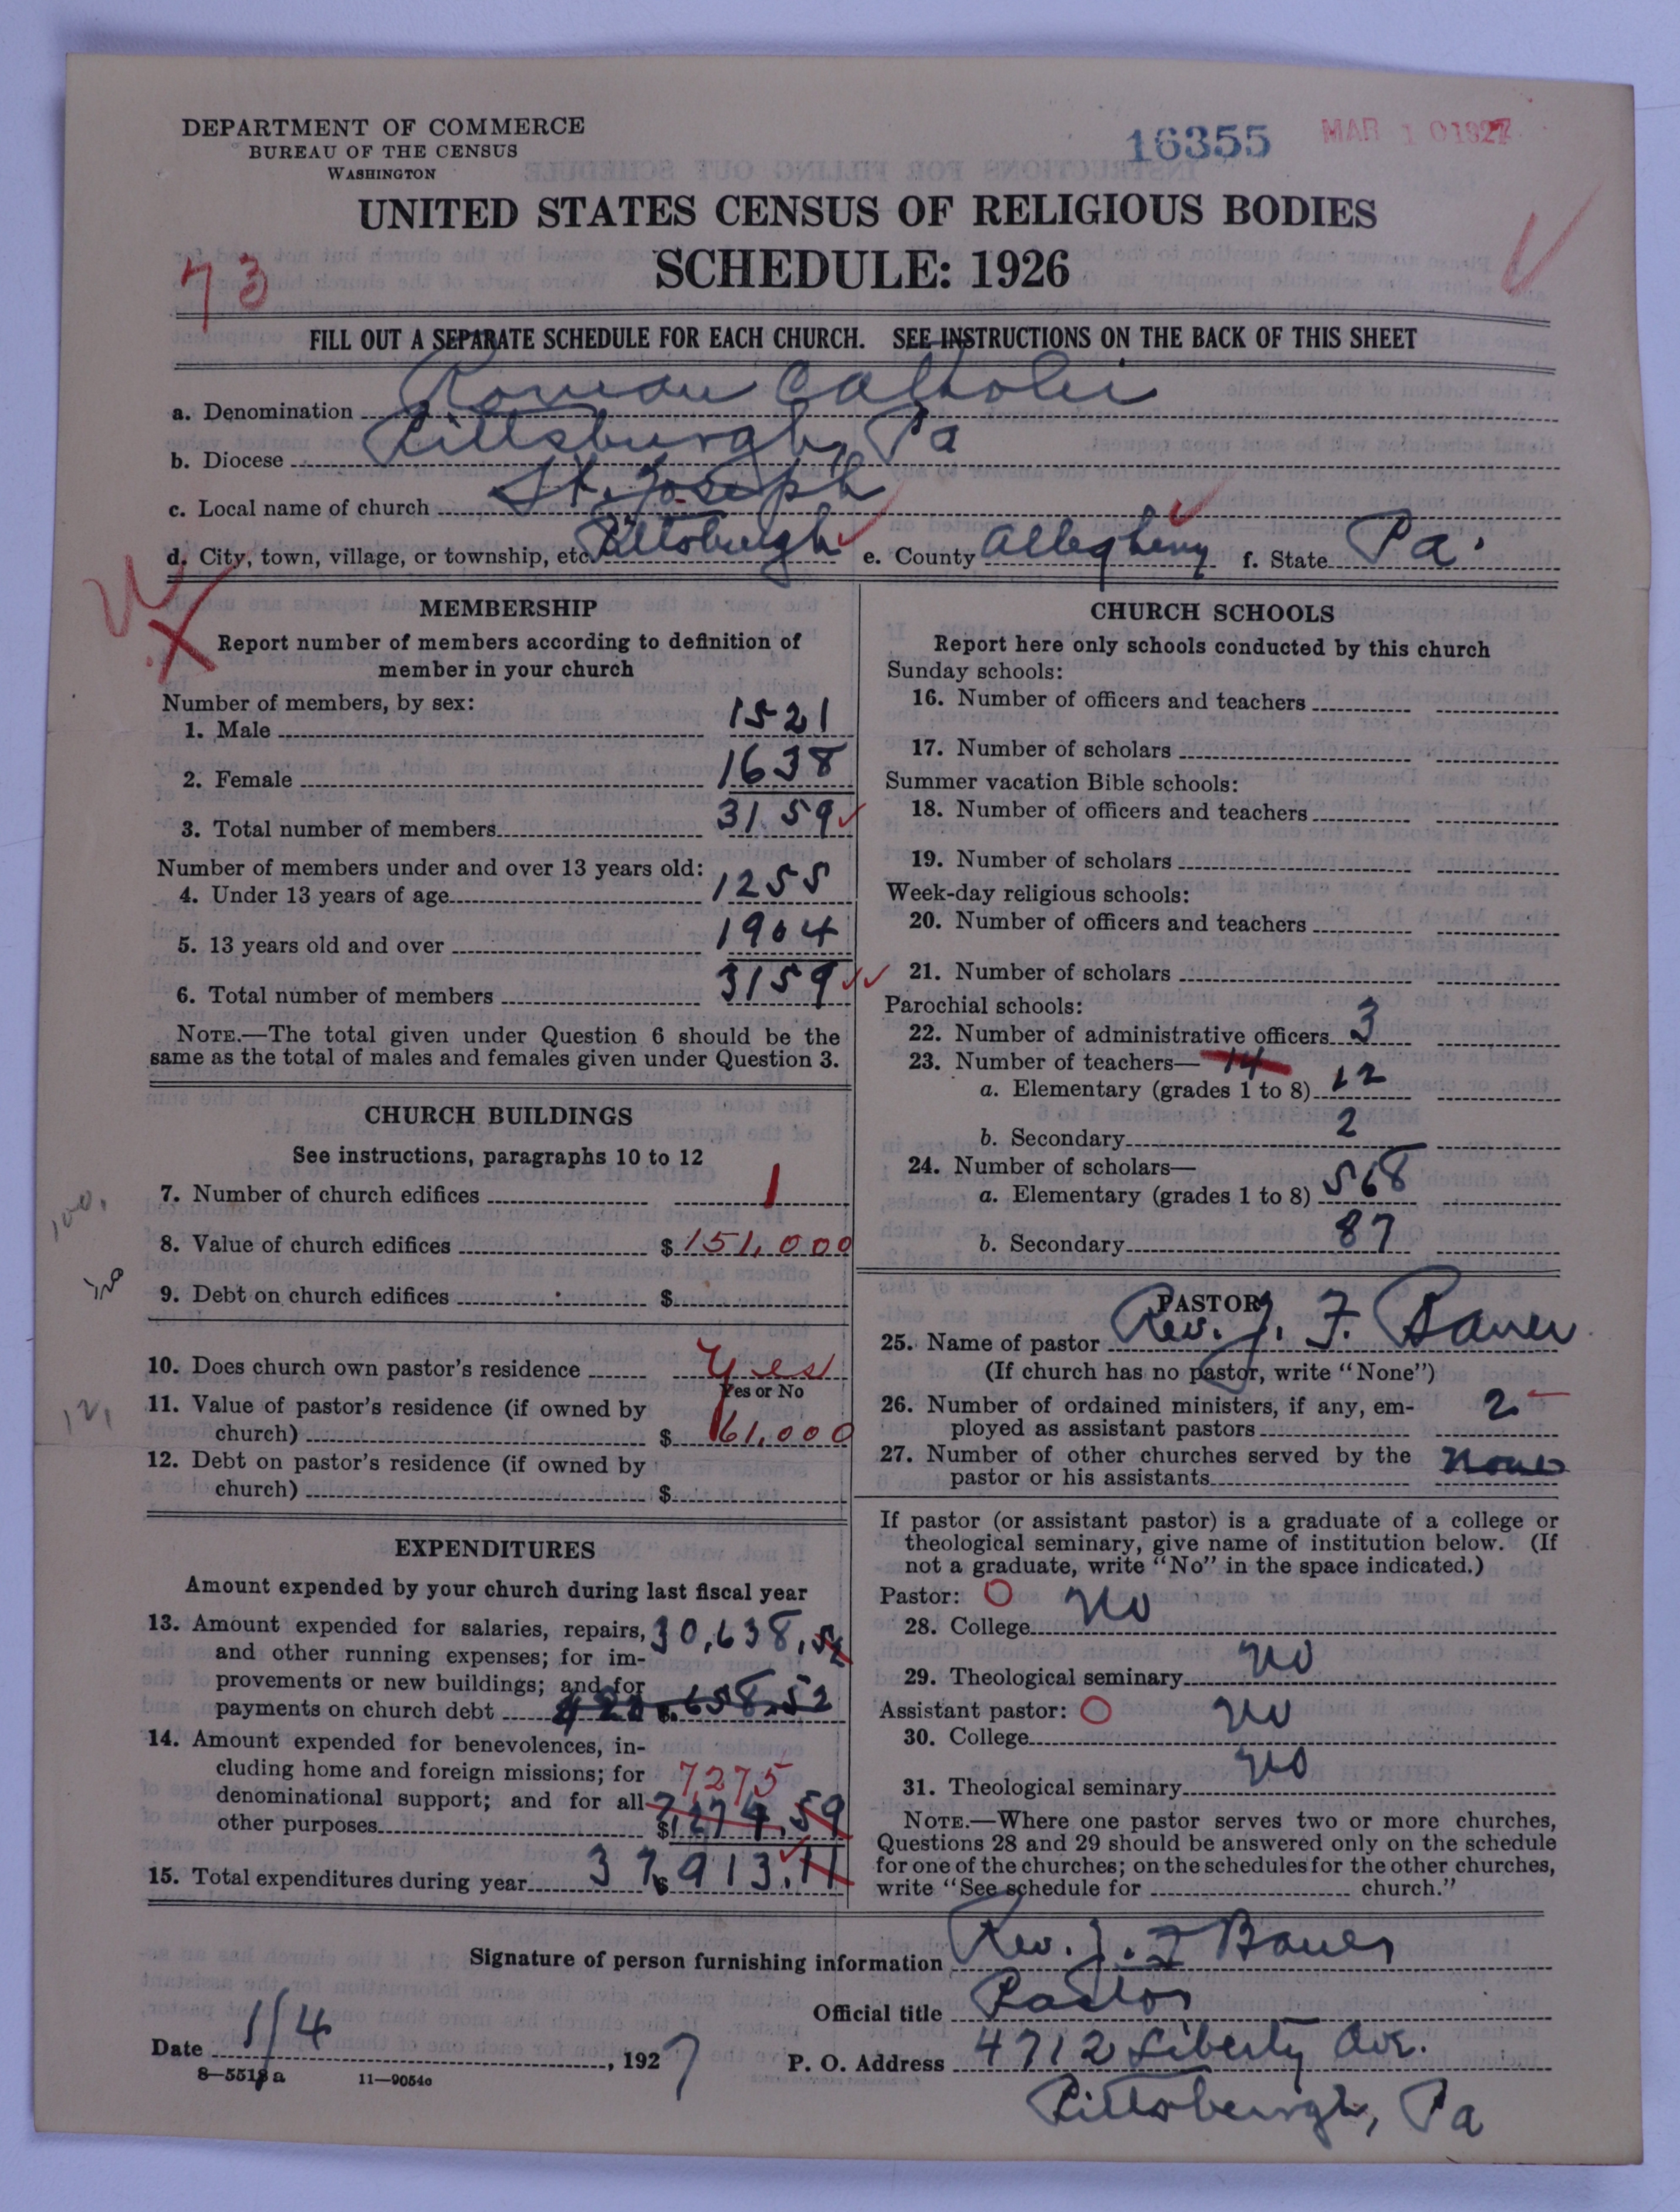 DEPARTMENT OF COMMERCE
BUREAU OF THE CENSUS
WASHINGTON
16355 MAR 10 1927
UNITED STATES CENSUS OF RELIGIOUS BODIES
SCHEDULE: 1926
73
FILL OUT A SEPARATE SCHEDULE FOR EACH CHURCH. SEE INSTRUCTIONS ON THE BACK OF THIS SHEET
a. Denomination Roman Catholic
b. Diocese Pittsburgh, Pa
c. Local name of church St. Joseph
d. City, town, village, or township, etc. Pittsburgh e. County Allegheny f. State Pa.
MEMBERSHIP
Report number of members according to definition of
member in your church
Number of members, by sex:
1. Male 1521
2. Female 1638
3. Total number of members 3159
Number of members under and over 13 years old:
4. Under 13 years of age 1255
5. 13 years old and over 1904
6. Total number of members 3159
NOTE.—The total given under Question 6 should be the
same as the total of males and females given under Question 3.
CHURCH BUILDINGS
See instructions, paragraphs 10 to 12
7. Number of church edifices 1
100,
8. Value of church edifices $151,000
9. Debt on church edifices $
10. Does church own pastor's residence Yes
Yes or No
11. Value of pastor's residence (if owned by
church) $61,000
12. Debt on pastor's residence (if owned by
church) $
EXPENDITURES
Amount expended by your church during last fiscal year
13. Amount expended for salaries, repairs, 30,638.52
and other running expenses; for im-
provements or new buildings; and for
payments on church debt $
14. Amount expended for benevolences, in-
cluding home and foreign missions; for 7,275
denominational support; and for all
other purposes $7274.59
15. Total expenditures during year $37,913.11
CHURCH SCHOOLS
Report here only schools conducted by this church
Sunday schools:
16. Number of officers and teachers
17. Number of scholars
Summer vacation Bible schools:
18. Number of officers and teachers
19. Number of scholars
Week-day religious schools:
20. Number of officers and teachers
21. Number of scholars
Parochial schools:
22. Number of administrative officers 3
23. Number of teachers— 14
a. Elementary (grades 1 to 8) 12
b. Secondary 2
24. Number of scholars—
a. Elementary (grades 1 to 8) 568
b. Secondary 87
PASTOR
25. Name of pastor Rev. J. F. Bauer
(If church has no pastor, write "None")
26. Number of ordained ministers, if any, em-
ployed as assistant pastors 2
27. Number of other churches served by the
pastor or his assistants None
If pastor (or assistant pastor) is a graduate of a college or
theological seminary, give name of institution below. (If
not a graduate, write "No" in the space indicated.)
Pastor: O
28. College No
29. Theological seminary No
Assistant pastor: O
30. College No
31. Theological seminary No
NOTE.—Where one pastor serves two or more churches,
Questions 28 and 29 should be answered only on the schedule
for one of the churches; on the schedules for the other churches,
write "See schedule for church."
Signature of person furnishing information Rev. J. F Bauer
Official title Pastor
Date 1/4, 1927 P. O. Address 4712 Liberty Ave.
8—5518a 11—9054c
Pittsburgh, Pa